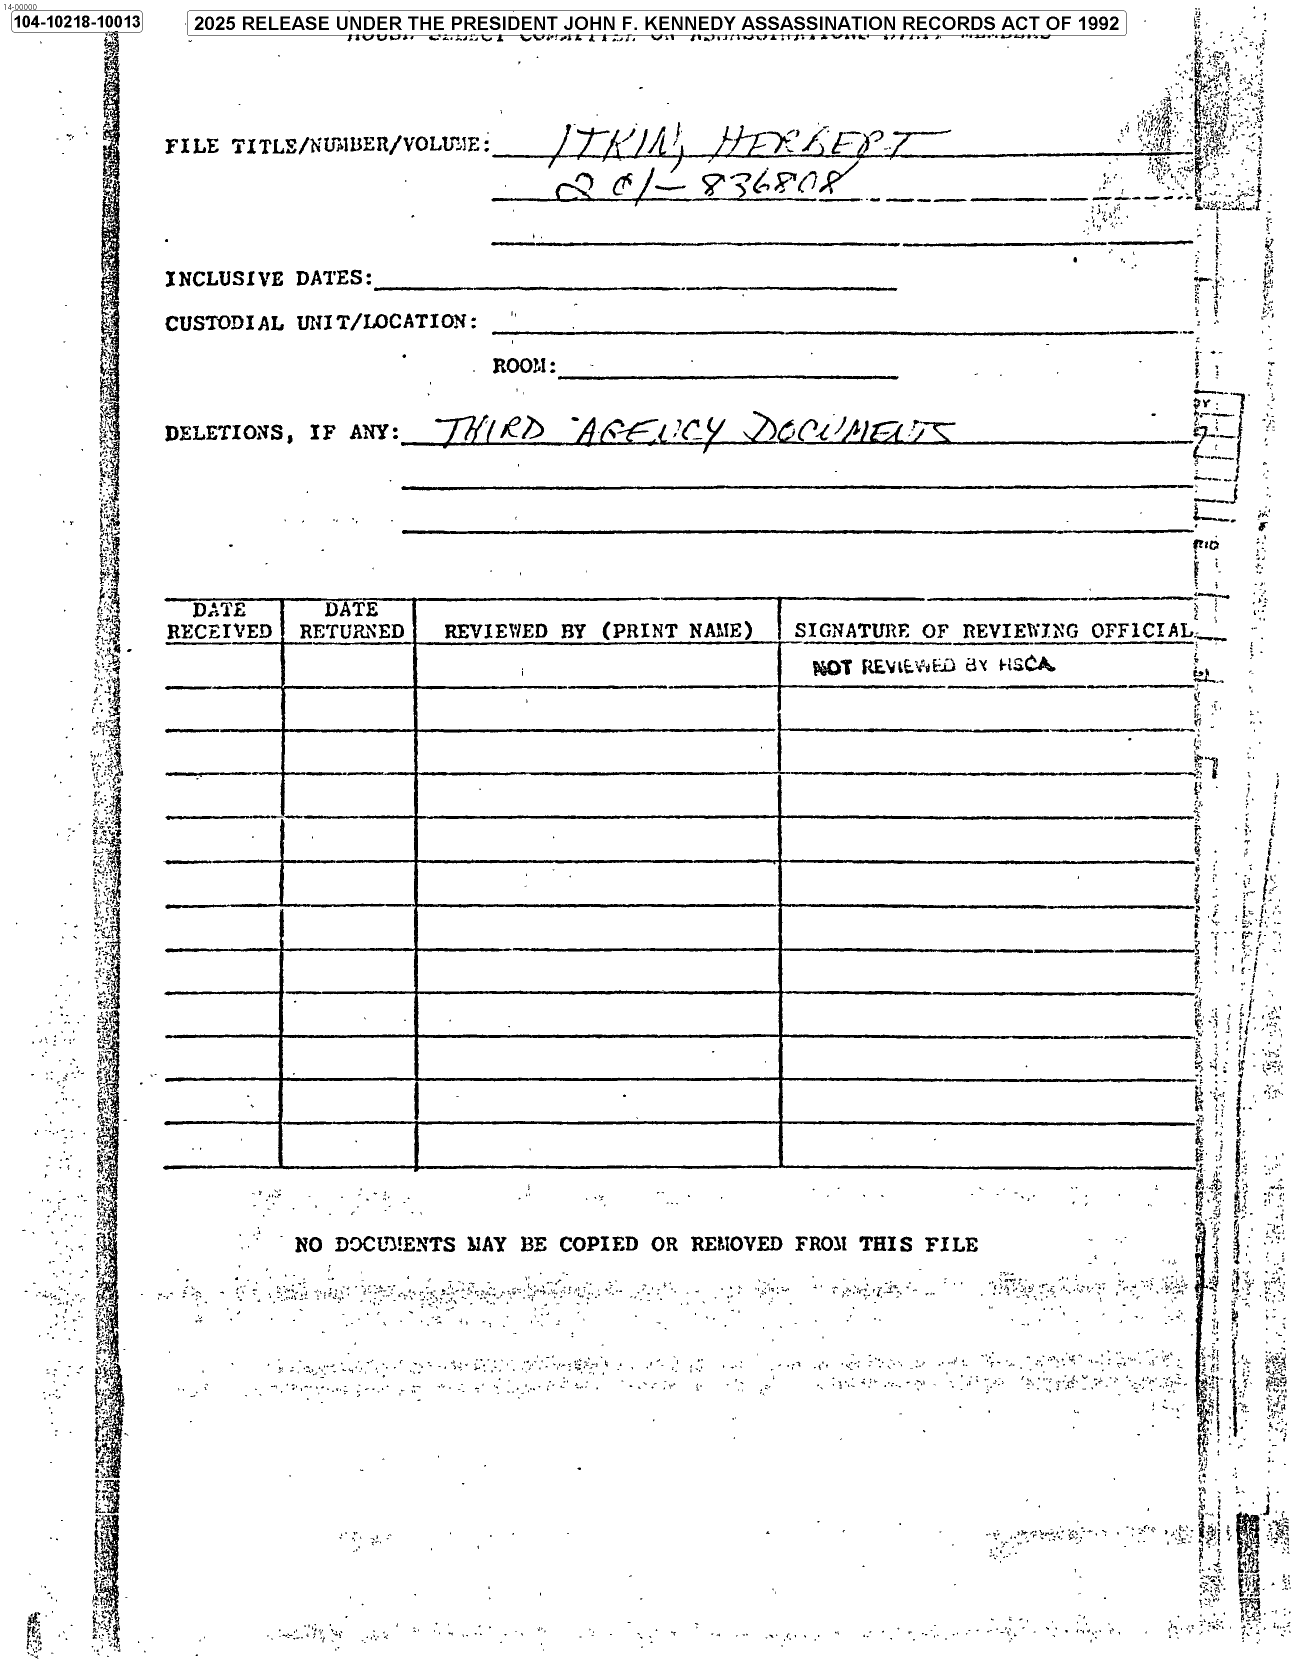 14-00000
104-10218-10013
2025 RELEASE UNDER THE PRESIDENT JOHN F. KENNEDY ASSASSINATION RECORDS ACT OF 1992
HOUSE SELECT COMMITTEE ON ASSASSINATIONS STAFF MEMBERS
FILE TITLE/NUMBER/VOLUME: ITKIN, HERBERT
201-836808
INCLUSIVE DATES:
CUSTODIAL UNIT/LOCATION:
ROOM:
DELETIONS, IF ANY: THIRD AGENCY DOCUMENTS
DATE RECEIVED DATE RETURNED REVIEWED BY (PRINT NAME) SIGNATURE OF REVIEWING OFFICIAL
NOT REVIEWED BY HSCA
NO DOCUMENTS MAY BE COPIED OR REMOVED FROM THIS FILE